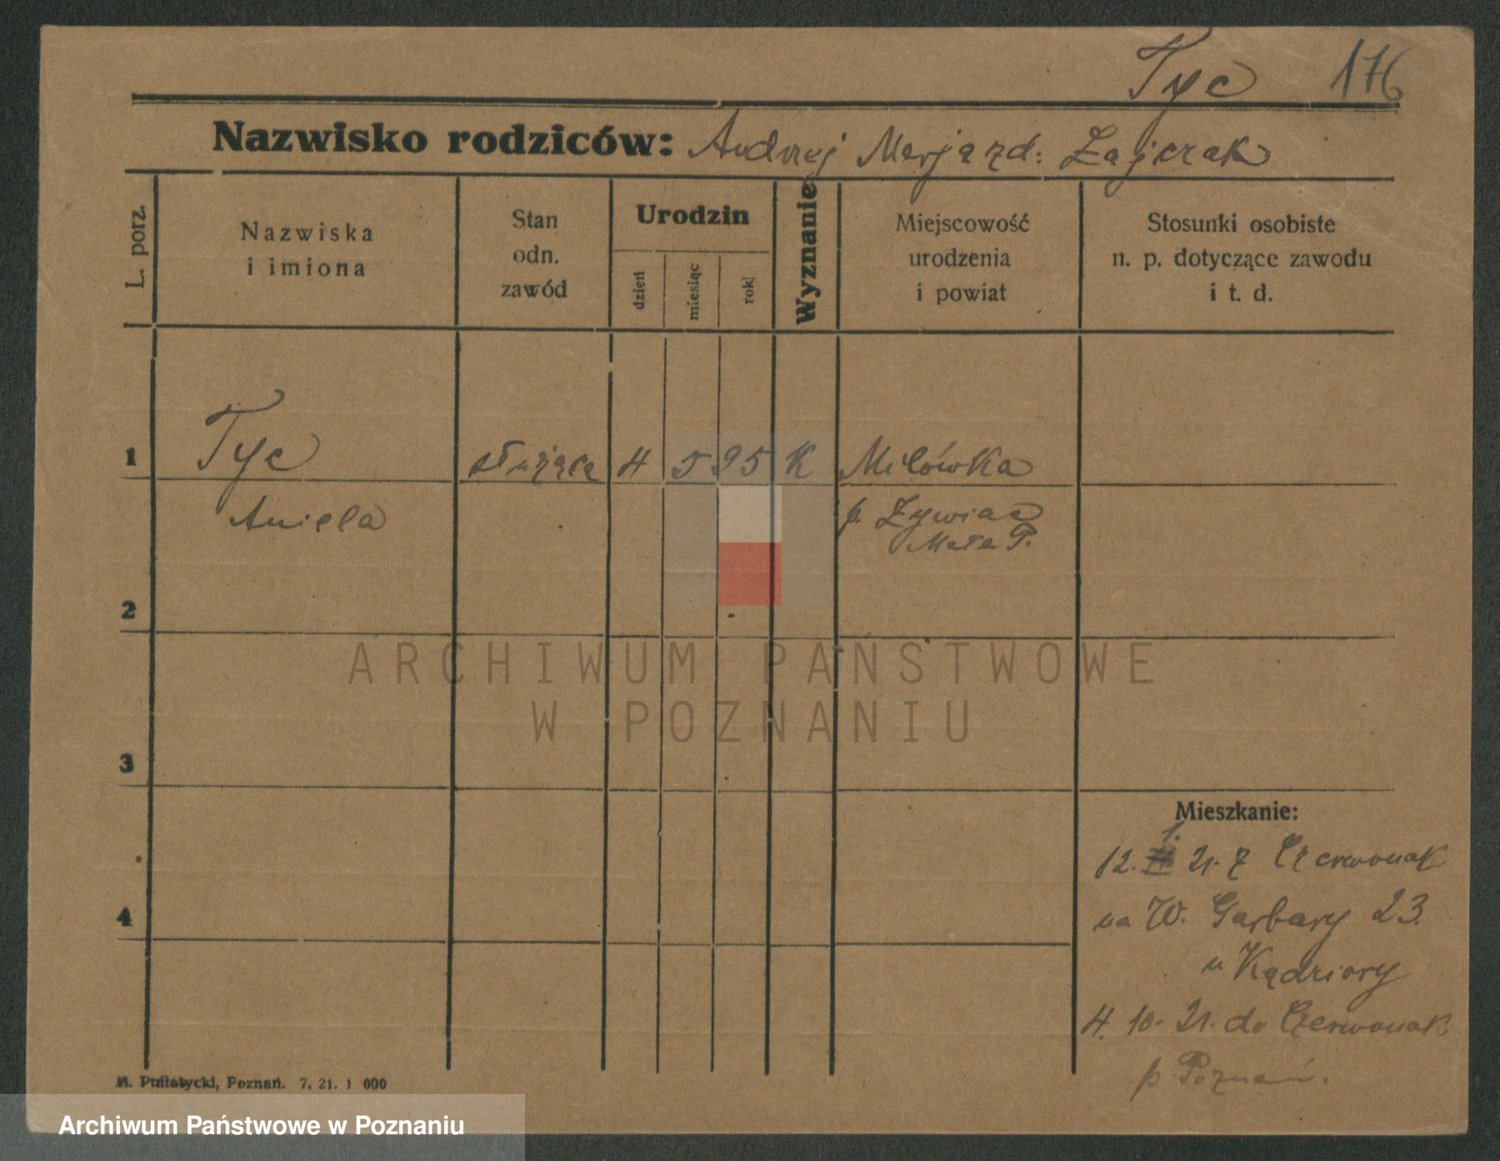 Tyc 176
Nazwisko rodziców: Andrzej Marja zd: Zajczak
L. porz.
Nazwiska
i imiona
Stan
odn.
zawód
Urodzin
dzień
miesiąc
rok
Wyznanie
Miejscowość
urodzenia
i powiat
Stosunki osobiste
n. p. dotyczące zawodu
i t. d.
1 Tyc służąca 4 5 95 K Milówka
Aniela p. Żywiec
Mała P.
2
ARCHIWUM PAŃSTWOWE
W POZNANIU
3
Mieszkanie:
1.
12. 21. z Czerwonak
4 na W. Garbary 23.
u Kędziory
4. 10. 21. do Czerwonak
p Poznań.
M. Putiatycki, Poznań. 7. 21. 1 000
Archiwum Państwowe w Poznaniu